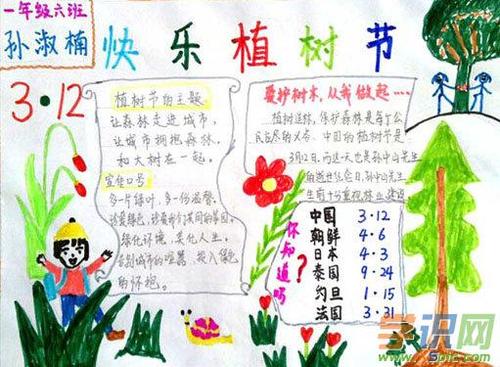 一年级六班
孙淑楠
快乐植树节
3·12
植树节的主题
让森林走进城市,
让城市拥抱森林
和大树在一起。
宣传口号
多一片绿叶,多一份温馨。
绿化环境,美化人生,
告别城市的喧嚣,投入绿色
的怀抱。
爱护树木,从我做起····
植树造林,保护森林是每个公
民应尽的义务。中国的植树节是
3月12日,而这一天也是孙中山先生
的逝世纪念日,孙中山先生
生前十分重视林业建设
你知道吗?
中国 3·12
朝鲜 4·6
日本 4·3
泰国 9·24
约旦 1·15
法国 3·31
学识网